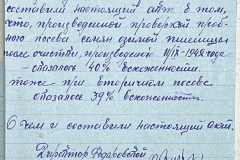 составили настоящий акт в том,
что, произведенной проверкой проб-
ного посева семян озимой пшеницы
после очистки, произведен 11/IX-1948 года
- оказалось 40% всхоженности
тоже при вторичном посеве
оказалось 39% всхоженности.
О чем и составили настоящий акт.
Директор